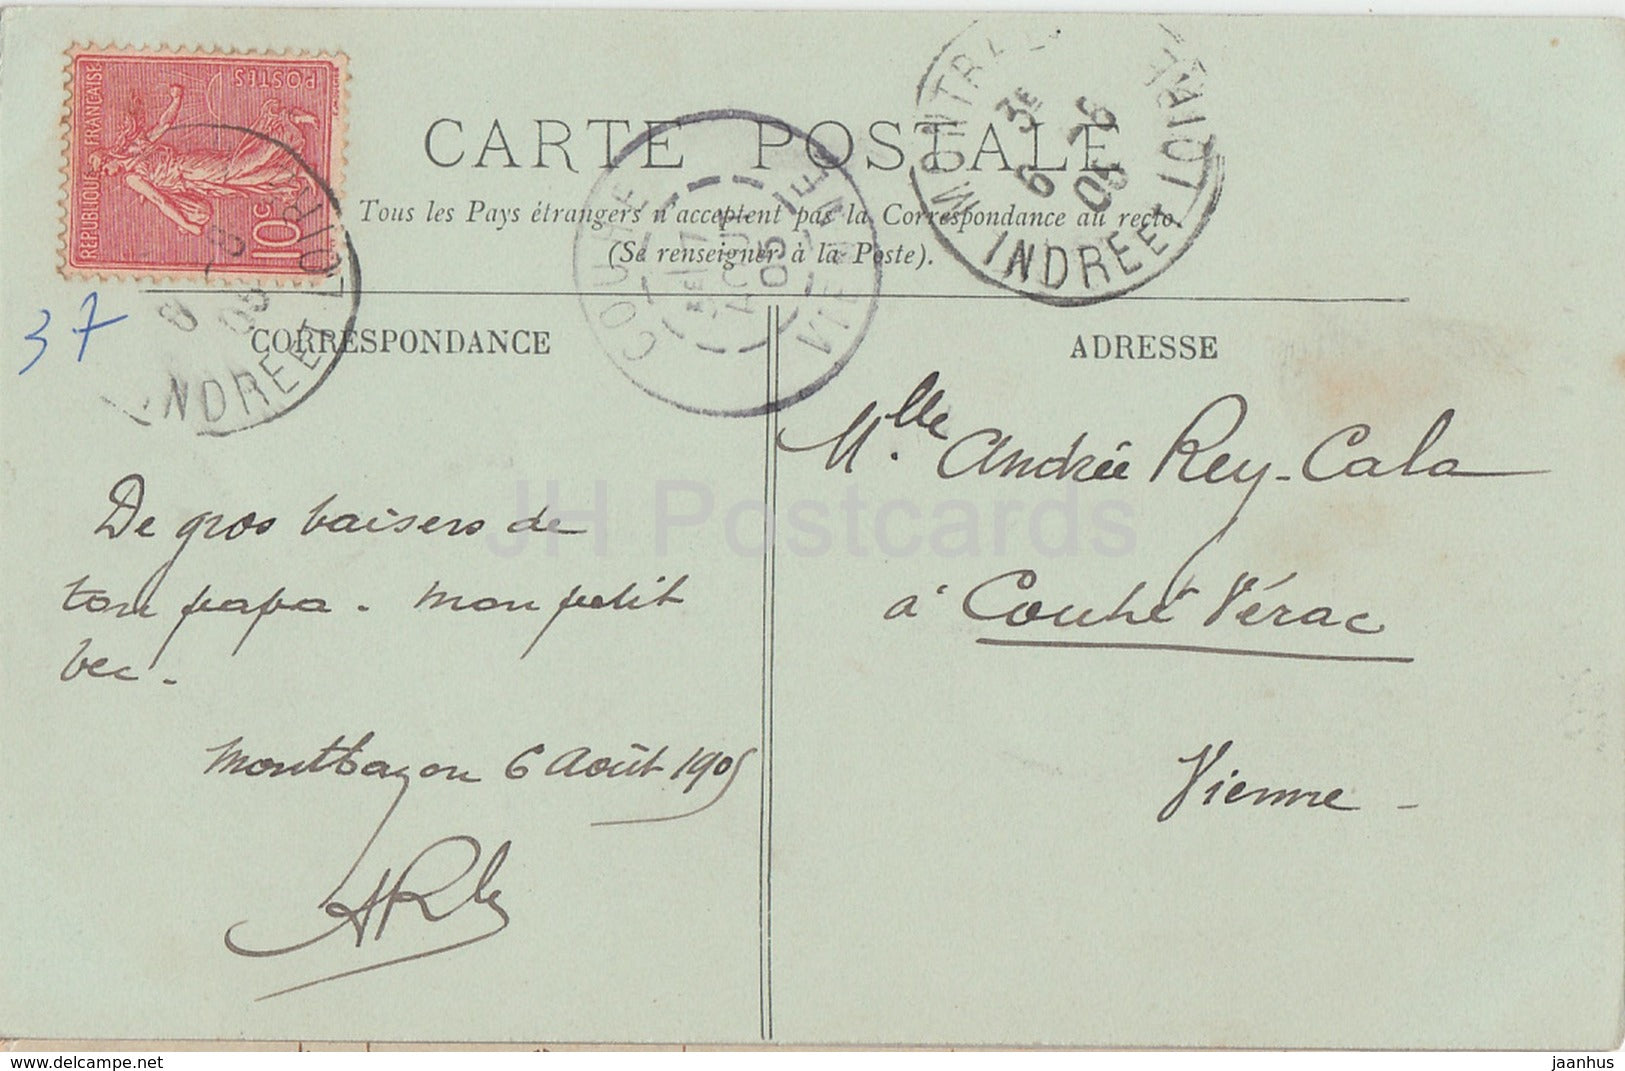 RÉPUBLIQUE FRANÇAISE
POSTES
10c
CARTE POSTALE
Tous les Pays étrangers n'acceptent pas la Correspondance au recto.
(Se renseigner à la Poste).
INDRE ET LOIRE
COUHÉ
VIENNE
INDRE ET LOIRE
37
CORRESPONDANCE
ADRESSE
De gros baisers de
ton papa. mon petit
bec.
Montbazon 6 Août 1905
Mlle Andrée Rey-Cala
à Couhé Vérac
Vienne
JH Postcards
hippostcard.com
jaanhus